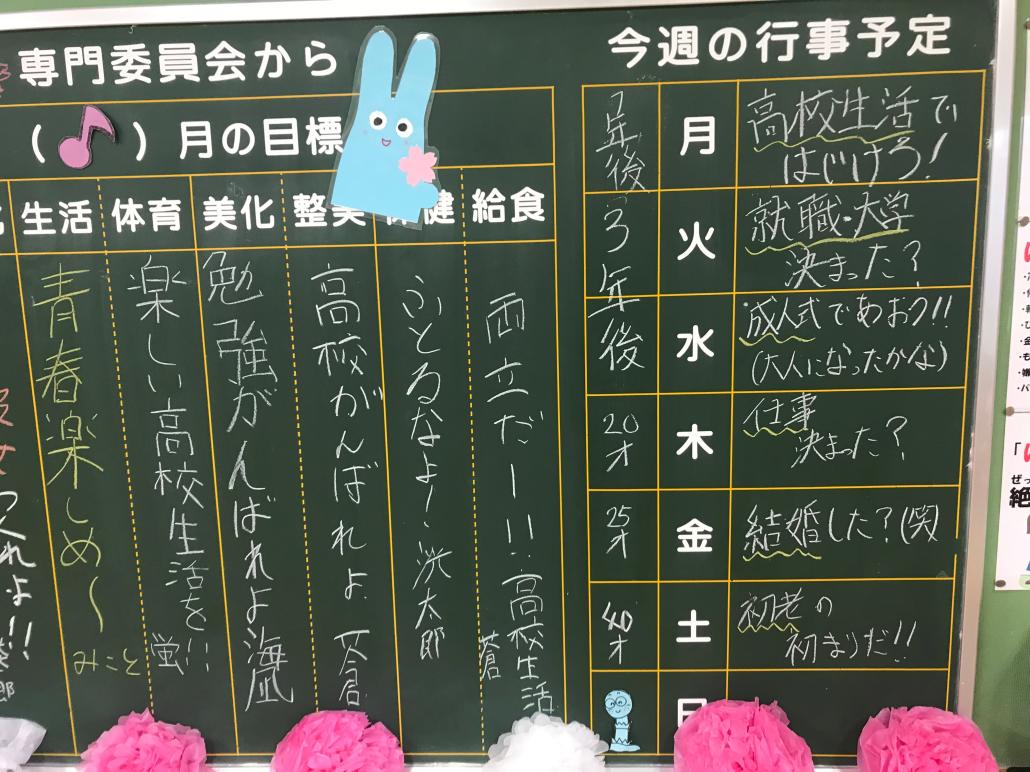 専門委員会から
( ) 月の目標
生活
体育
美化
整美
保健
給食
青春楽しめ〜
みこと
楽しい高校生活を
蛍!!
勉強がんばれよ
海凪
高校がんばれよ
ふとるなよ!
洸太郎
両立だー!!
高校生活
蒼
つくれよ!!
今週の行事予定
1年後
月
高校生活で
はじけろ!
3年後
火
就職・大学
決まった?
水
成人式であおう!!
(大人になったかな)
20才
木
仕事
決まった?
25才
金
結婚した?(笑)
40才
土
初老の
初まりだ!!
日